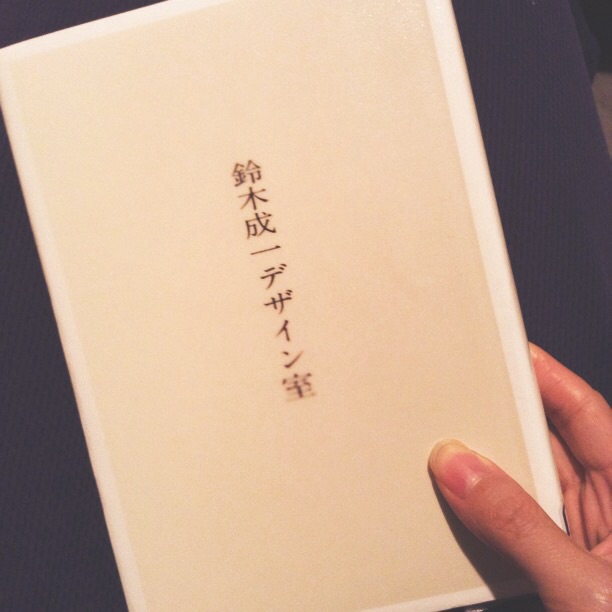 鈴木成一デザイン室